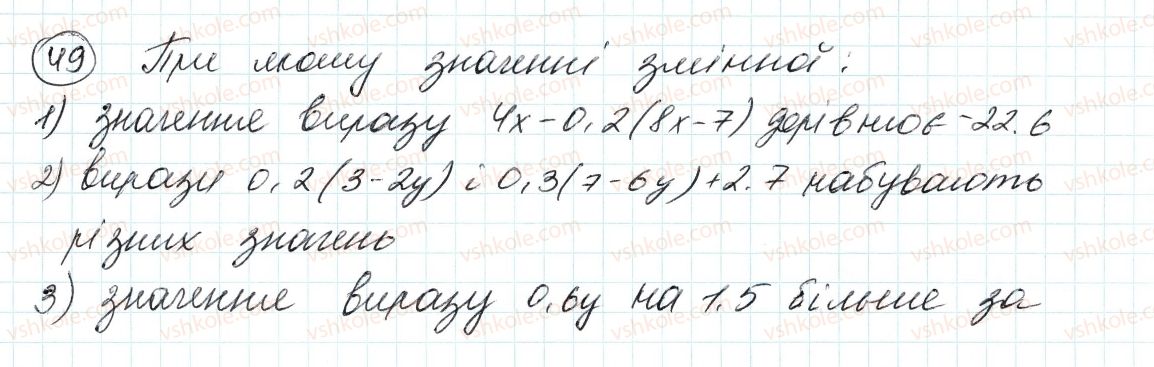 49 При якому значенні змінної:
1) значення виразу 4x-0,2(8x-7) дорівнює -22.6
2) вирази 0,2(3-2y) і 0,3(7-6y)+2.7 набувають
різних значень
3) значення виразу 0,6y на 1.5 більше за